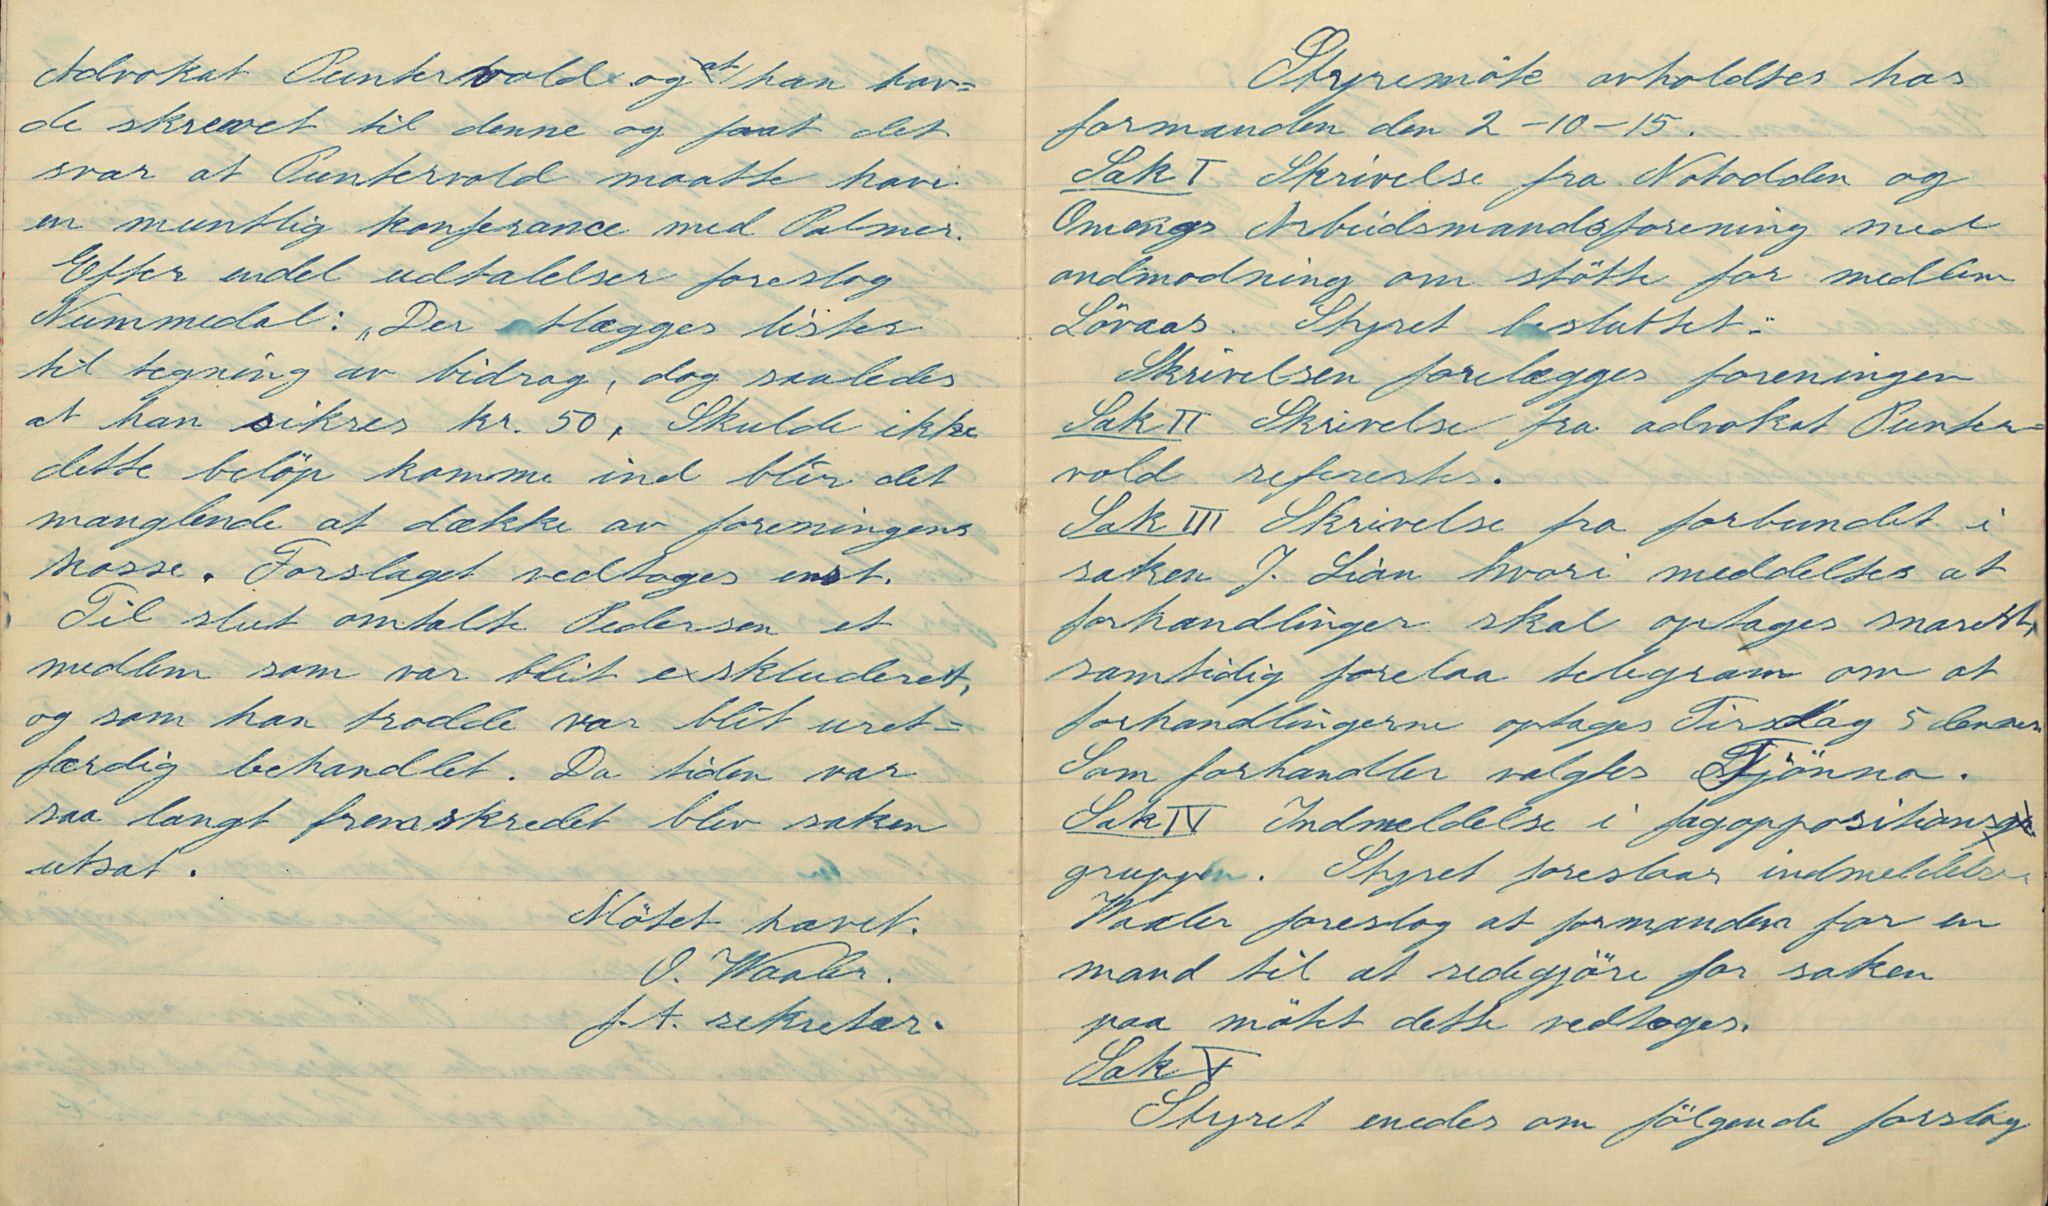 Advokat Puntervold og at han hav=
de skrevet til denne og faat det
svar at Puntervold maatte have
en muntlig konferance med Palmer.
Efter endel udtalelser foreslog
Nummedal: „Der utlægges lister
til tegning av bidrag, dog saaledes
at han sikres kr. 50, Skulde ikke
dette beløp komme ind blir det
manglende at dække av foreningens
kasse. Forslaget vedtoges enst.
Til slut omtalte Pedersen et
medlem som var blit exskluderet,
og som han trodde var blit uret=
færdig behandlet. Da tiden var
saa langt fremskredet blev saken
utsat.
Mötet hævet.
O. Waaler.
f.t. sekretær.
Styremöte avholdtes hos
formanden den 2-10-15.
Sak I Skrivelse fra Notodden og
Omegns Arbeidsmandsforening med
andmodning om stötte for medlem
Lövaas. Styret besluttet:
Skrivelsen forelægges foreningen
Sak II Skrivelse fra advokat Punter=
vold refererstes.
Sak III Skrivelse fra forbundet i
saken J. Lian hvori meddeltes at
forhandlinger skal optages snarest,
samtidig forelaa telegram om at
forhandlingerne optages Tirsdag 5 dennes
Som forhandler valgtes Tjönna.
Sak IV Indmeldelse i fagoppositions
gruppen. Styret foreslaar indmeldelse
Waaler foreslog at formanden for en
mand til at redegjöre for saken
paa mötet dette vedtoges.
Sak V
Styret enedes om fölgende forslag